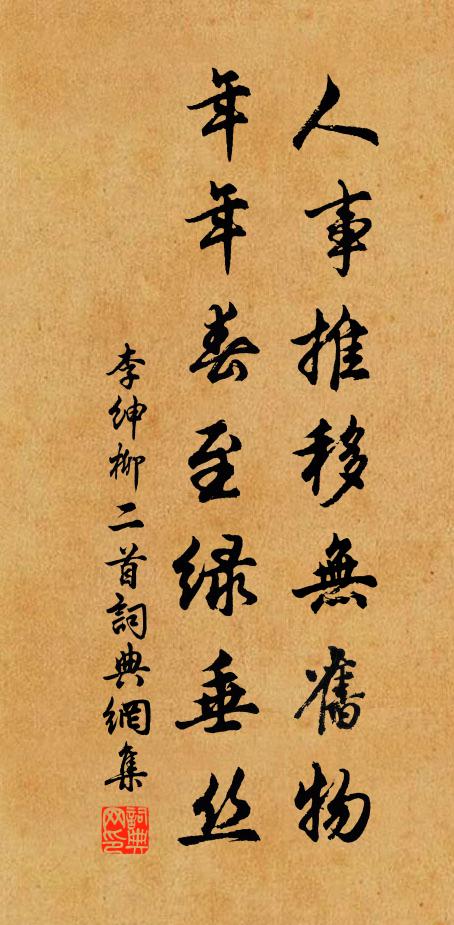 人事推移無舊物
年年春至緑垂丝
李绅柳二首詞典網集
詞典网印